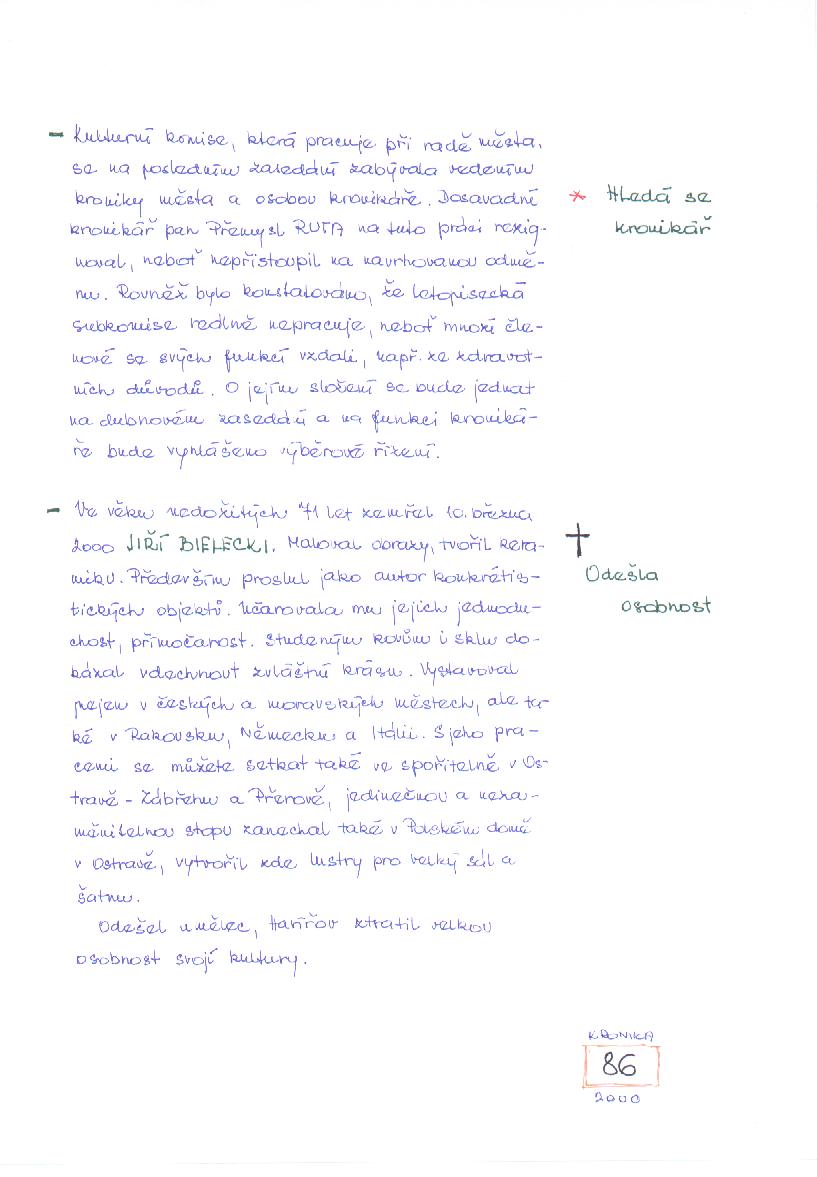 - Kulturní komise, která pracuje při radě města,
se na posledním zasedání zabývala vedením
kroniky města a osobou kronikáře. Dosavadní
kronikář pan Přemysl RUTA na tuto práci rezig-
noval, neboť nepřistoupil na navrhovanou odmě-
nu. Rovněž bylo konstatováno, že letopisecká
subkomise reálně nepracuje, neboť mnozí čle-
nové se svých funkcí vzdali, např. ze zdravot-
ních důvodů. O jejím složení se bude jednat
na dubnovém zasedání a na funkci kroniká-
ře bude vyhlášeno výběrové řízení.
* Hledá se
kronikář
- Ve věku nedožitých 71 let zemřel 10. března
2000 JIŘÍ BIELECKI. Maloval obrazy, tvořil kera-
miku. Především proslul jako autor konkrétis-
tických objektů. Učarovala mu jejich jednodu-
chost, přímočarost. Studeným kovům i sklu do-
kázal vdechnout zvláštní krásu. Vystavoval
nejen v českých a moravských městech, ale ta-
ké v Rakousku, Německu a Itálii. S jeho pra-
cemi se můžete setkat také ve spořitelně v Os-
travě - Zábřehu a Přerově, jedinečnou a neza-
měnitelnou stopu zanechal také v Polském domě
v Ostravě, vytvořil zde lustry pro velký sál a
šatnu.
Odešel umělec, Havířov ztratil velkou
osobnost svojí kultury.
Odešla
osobnost
KRONIKA
86
2000